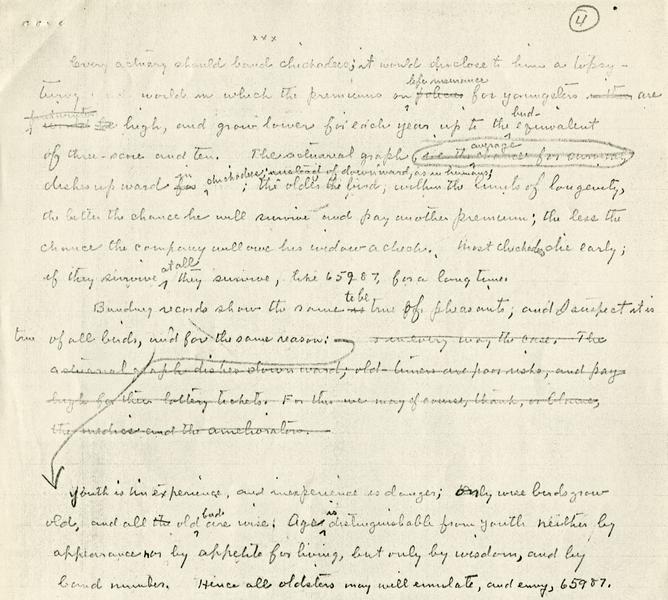 4
xxx
Every actuary should band chickadees; it would disclose to him a topsy-
turvy world in which the premiums on life insurance policies for youngsters are
high, and grow lower for each year up to the bird-equivalent
of three-score and ten. The actuarial graph, average
dishes upward in chickadees, instead of downward, as in humans; the older the bird, within the limits of longevity,
the better the chance he will survive and pay another premium; the less the
chance the company will owe his widow a check. Most chickadees die early;
if they survive at all they survive, like 65287, for a long time.
Banding records show the same to be true of pheasants; and I suspect it is
true of all birds, and for the same reason: in every way, the case. The
actuarial graph dishes downward; old-timers are poor risks, and pay
high for their lottery tickets. For this we may of course, thank, or blame,
the medics and the ameliorators.
Youth is inexperience, and inexperience is danger; Only wise birds grow
old, and all the old birds are wise. Age is distinguishable from youth neither by
appearance nor by appetite for living, but only by wisdom, and by
band number. Hence all oldsters may well emulate, and envy, 65287.